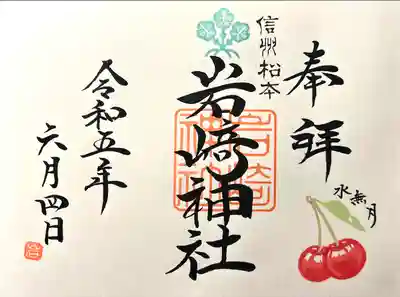 奉拝
水無月
信州松本
岩崎神社
岩崎神社
令和五年
六月四日